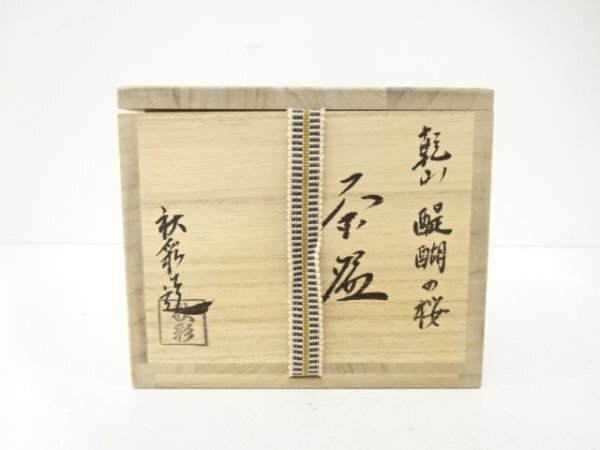 乾山 醍醐の桜
茶盌
秋彩造
秋彩